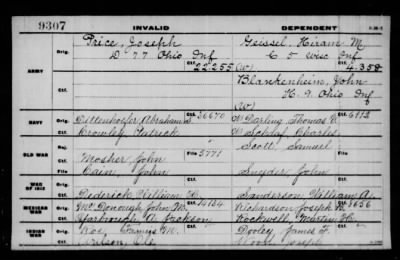 9307 INVALID DEPENDENT
Orig. Price, Joseph Geissel, Hiram M
D 77 Ohio Inf E 5 Wisc Inf
ARMY Ctf. 22.255 (W) Ctf. 4.358
Blankenheim, John
Ctf. H. 9. Ohio Inf
(W)
NAVY Orig. Dittenhoefer Abraham S. Ctf. 36670 W Darling Thomas D. Ctf. 6112
Ctf. Crowley Patrick W Schlaf Charles
OLD WAR Rej. File 5771 Scott Samuel File
Mosher John
Cain, John Snyder John
WAR OF 1812 Orig.
Ctf. Dederick William C. Sanderson William A.
MEXICAN WAR Orig. McDonough John M. Ctf. 14134 Richardson Joseph H. Ctf. 8656
Ctf. Yarbrough A. Jackson Rockwell, Martin H.
INDIAN WAR Orig. Roe, Francis M. Dooley James F.
Ctf. Nelson, Ole Moore Joseph